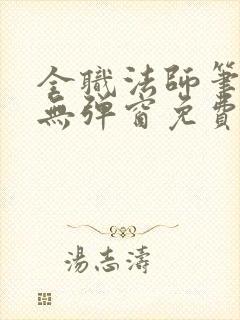 全職法師筆
無彈窗免費
湯志濤